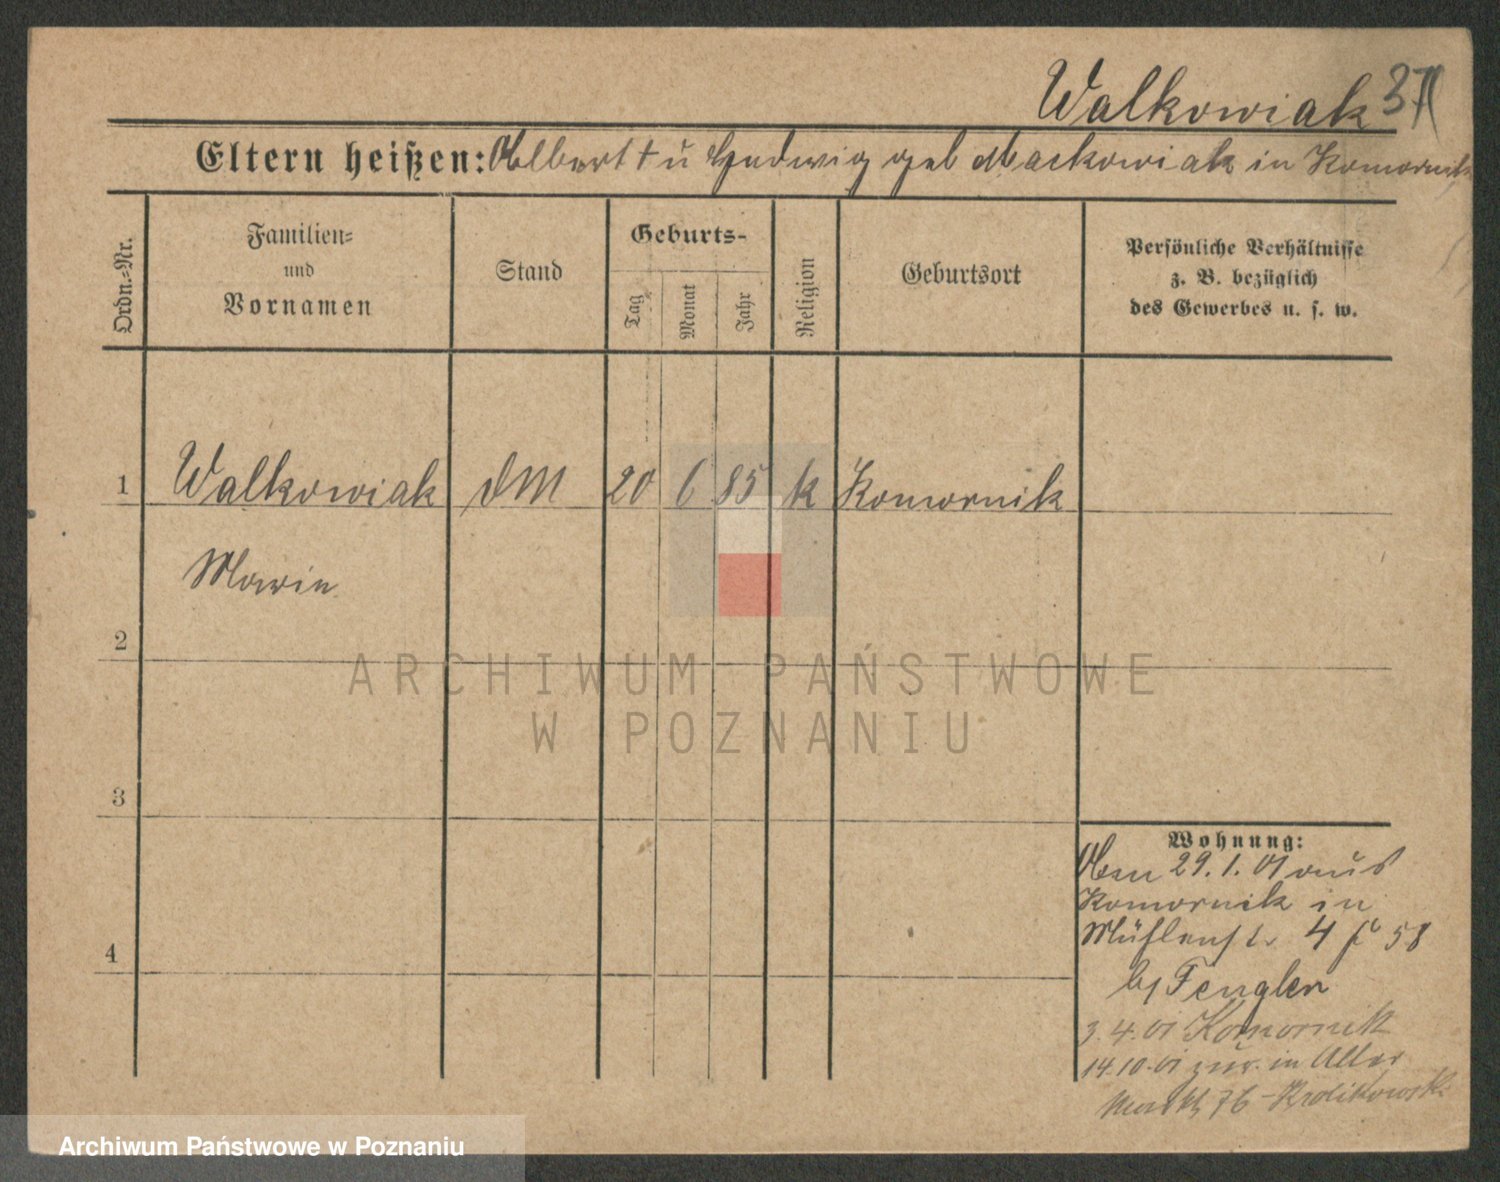 Walkowiak 37
Eltern heißen: Albert † u Hedwig geb Mackowiak in Komornik
Ordn.-Nr.
Familien-
und
Vornamen
Stand
Geburts-
Tag
Monat
Jahr
Religion
Geburtsort
Persönliche Verhältnisse
z. B. bezüglich
des Gewerbes u. s. w.
1 Walkowiak DM 20 6 85 k Komornik
Marie
2
3
4
Wohnung:
29.1.01 aus
Komornik in
Mühlenstr 4 58
b/ Fengler
3.4.01 Komornik
14.10.01 zur. in Alter
Markt 76 - Krolikowski
ARCHIWUM PAŃSTWOWE
W POZNANIU
Archiwum Państwowe w Poznaniu